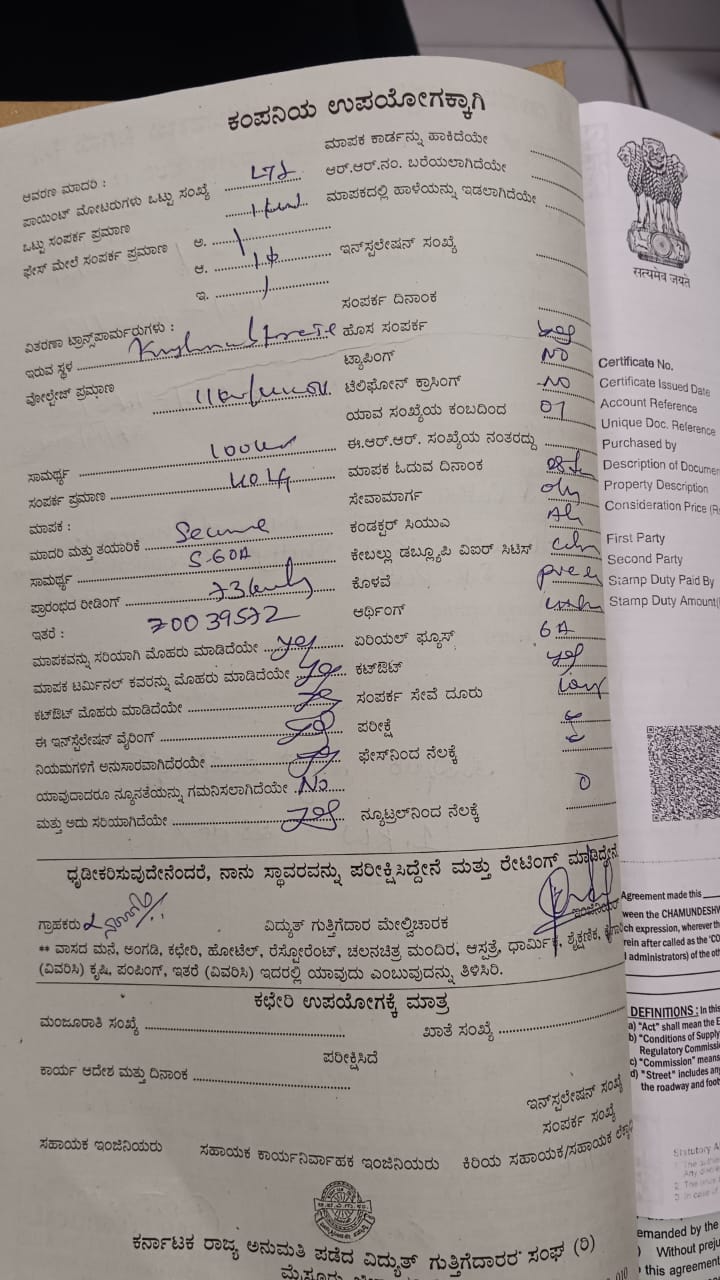 ಕಂಪನಿಯ ಉಪಯೋಗಕ್ಕಾಗಿ
ಆವರಣ ಮಾದರಿ :
ಪಾಯಿಂಟ್ ಮೋಟರುಗಳು ಒಟ್ಟು ಸಂಖ್ಯೆ
ಒಟ್ಟು ಸಂಪರ್ಕ ಪ್ರಮಾಣ
ಫೇಸ್ ಮೇಲೆ ಸಂಪರ್ಕ ಪ್ರಮಾಣ ಅ. 1
ಆ. 1
ಇ. 1
ವಿತರಣಾ ಟ್ರಾನ್ಸ್‌ಪಾರ್ಮರುಗಳು :
ಇರುವ ಸ್ಥಳ
ವೋಲ್ಟೇಜ್ ಪ್ರಮಾಣ
ಸಾಮರ್ಥ್ಯ
ಸಂಪರ್ಕ ಪ್ರಮಾಣ
ಮಾಪಕ :
ಮಾದರಿ ಮತ್ತು ತಯಾರಿಕೆ Secure
ಸಾಮರ್ಥ್ಯ 5-60A
ಪ್ರಾರಂಭದ ರೀಡಿಂಗ್
ಇತರೆ : 70039572
ಮಾಪಕವನ್ನು ಸರಿಯಾಗಿ ಮೊಹರು ಮಾಡಿದೆಯೇ yes
ಮಾಪಕ ಟರ್ಮಿನಲ್ ಕವರನ್ನು ಮೊಹರು ಮಾಡಿದೆಯೇ yes
ಕಟ್‌ಔಟ್ ಮೊಹರು ಮಾಡಿದೆಯೇ yes
ಈ ಇನ್‌ಸ್ಟಲೇಷನ್ ವೈರಿಂಗ್ yes
ನಿಯಮಗಳಿಗೆ ಅನುಸಾರವಾಗಿದೆರಯೇ yes
ಯಾವುದಾದರೂ ನ್ಯೂನತೆಯನ್ನು ಗಮನಿಸಲಾಗಿದೆಯೇ No
ಮತ್ತು ಅದು ಸರಿಯಾಗಿದೆಯೇ yes
ಮಾಪಕ ಕಾರ್ಡನ್ನು ಹಾಕಿದೆಯೇ
ಆರ್.ಆರ್.ನಂ. ಬರೆಯಲಾಗಿದೆಯೇ
ಮಾಪಕದಲ್ಲಿ ಹಾಳೆಯನ್ನು ಇಡಲಾಗಿದೆಯೇ
ಇನ್‌ಸ್ಟಲೇಷನ್ ಸಂಖ್ಯೆ
ಸಂಪರ್ಕ ದಿನಾಂಕ
ಹೊಸ ಸಂಪರ್ಕ yes
ಟ್ಯಾಪಿಂಗ್ NO
ಟೆಲಿಫೋನ್ ಕ್ರಾಸಿಂಗ್ NO
ಯಾವ ಸಂಖ್ಯೆಯ ಕಂಬದಿಂದ 01
ಈ.ಆರ್.ಆರ್. ಸಂಖ್ಯೆಯ ನಂತರದ್ದು
ಮಾಪಕ ಓದುವ ದಿನಾಂಕ
ಸೇವಾಮಾರ್ಗ
ಕಂಡಕ್ಟರ್ ಸಿಯುಎ Al
ಕೇಬಲ್ಲು ಡಬ್ಲ್ಯೂಪಿ ವಿಐರ್ ಸಿಟಿಸ್
ಕೊಳವೆ
ಆರ್ಥಿಂಗ್
ಏರಿಯಲ್ ಫ್ಯೂಸ್ 6A
ಕಟ್‌ಔಟ್ yes
ಸಂಪರ್ಕ ಸೇವೆ ದೂರು
ಪರೀಕ್ಷೆ
ಫೇಸ್‌ನಿಂದ ನೆಲಕ್ಕೆ
ನ್ಯೂಟ್ರಲ್‌ನಿಂದ ನೆಲಕ್ಕೆ 0
ಧೃಡೀಕರಿಸುವುದೇನೆಂದರೆ, ನಾನು ಸ್ಥಾವರವನ್ನು ಪರೀಕ್ಷಿಸಿದ್ದೇನೆ ಮತ್ತು ರೇಟಿಂಗ್ ಮಾಡಿದ್ದೇನೆ
ಗ್ರಾಹಕರು ವಿದ್ಯುತ್ ಗುತ್ತಿಗೆದಾರ ಮೇಲ್ವಿಚಾರಕ ಇಂಜಿನಿಯರ್
** ವಾಸದ ಮನೆ, ಅಂಗಡಿ, ಕಛೇರಿ, ಹೋಟೆಲ್, ರೆಸ್ಟೋರೆಂಟ್, ಚಲನಚಿತ್ರ ಮಂದಿರ, ಆಸ್ಪತ್ರೆ, ಧಾರ್ಮಿಕ, ಶೈಕ್ಷಣಿಕ,
(ವಿವರಿಸಿ) ಕೃಷಿ, ಪಂಪಿಂಗ್, ಇತರೆ (ವಿವರಿಸಿ) ಇದರಲ್ಲಿ ಯಾವುದು ಎಂಬುವುದನ್ನು ತಿಳಿಸಿರಿ.
ಕಛೇರಿ ಉಪಯೋಗಕ್ಕೆ ಮಾತ್ರ
ಮಂಜೂರಾತಿ ಸಂಖ್ಯೆ ಖಾತೆ ಸಂಖ್ಯೆ
ಪರೀಕ್ಷಿಸಿದೆ
ಕಾರ್ಯ ಆದೇಶ ಮತ್ತು ದಿನಾಂಕ
ಇನ್‌ಸ್ಟಲೇಷನ್ ಸಂಖ್ಯೆ
ಸಂಪರ್ಕ ಸಂಖ್ಯೆ
ಸಹಾಯಕ ಇಂಜಿನಿಯರು ಸಹಾಯಕ ಕಾರ್ಯನಿರ್ವಾಹಕ ಇಂಜಿನಿಯರು ಕಿರಿಯ ಸಹಾಯಕ/ಸಹಾಯಕ
ಕರ್ನಾಟಕ ರಾಜ್ಯ ಅನುಮತಿ ಪಡೆದ ವಿದ್ಯುತ್ ಗುತ್ತಿಗೆದಾರರ ಸಂಘ (ರಿ)
सत्यमेव जयते
Certificate No.
Certificate Issued Date
Account Reference
Unique Doc. Reference
Purchased by
Description of Documen
Property Description
Consideration Price (R
First Party
Second Party
Stamp Duty Paid By
Stamp Duty Amount(
Agreement made this
ween the CHAMUNDESHV
ch expression, wherever th
rein after called as the 'CO
l administrators) of the ot
DEFINITIONS : In this
a) "Act" shall mean the E
b) "Conditions of Supply
Regulatory Commissi
c) "Commission" means
d) "Street" includes any
the roadway and foot
Statutory A
emanded by the
) Without preju
this agreement